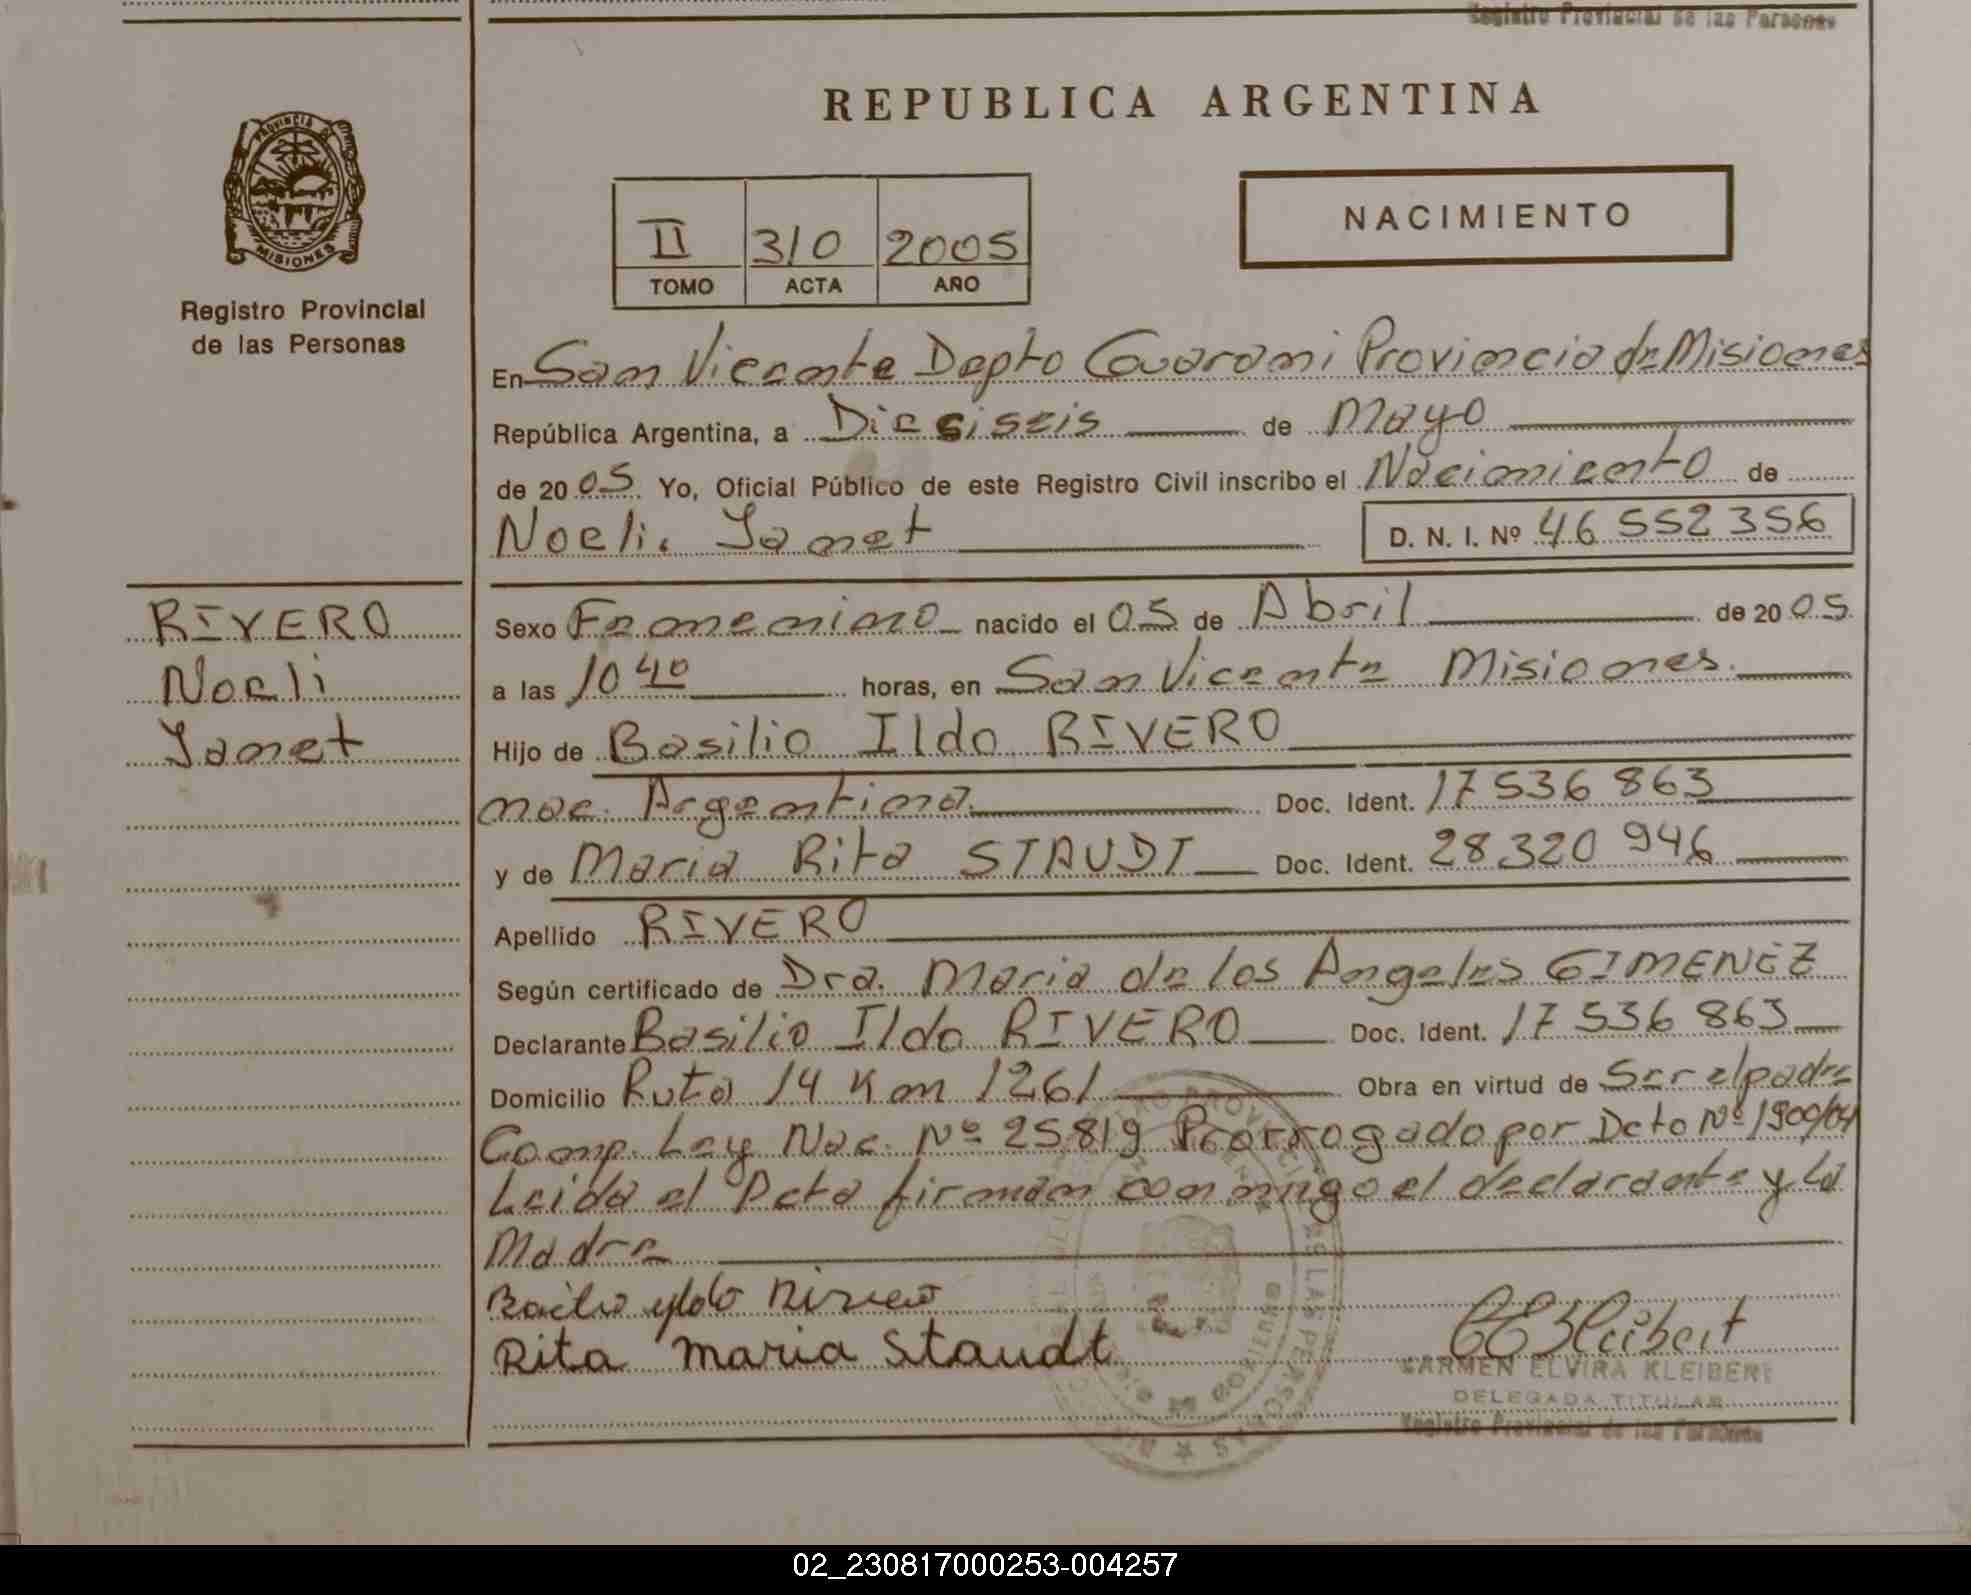 Registro Provincial de las Personas
REPUBLICA ARGENTINA
PROVINCIA DE
MISIONES
Registro Provincial
de las Personas
NACIMIENTO
II 310 2005
TOMO ACTA AÑO
En San Vicente Depto Guarani Provincia de Misiones
República Argentina, a Diesiseis de Mayo
de 2005 Yo, Oficial Público de este Registro Civil inscribo el Nacimiento de
Noeli Janet D. N. I. Nº 46 552 356
RIVERO
Noeli
Janet
Sexo Femenino nacido el 05 de Abril de 2005
a las 10 40 horas, en San Vicente Misiones
Hijo de Basilio Ildo RIVERO
nac. Argentina Doc. Ident. 17 536 863
y de Maria Rita STAUDT Doc. Ident. 28 320 946
Apellido RIVERO
Según certificado de Dra. Maria de los Angeles GIMENEZ
Declarante Basilio Ildo RIVERO Doc. Ident. 17 536 863
Domicilio Ruta 14 Km 1261 Obra en virtud de Ser el padre
Comp. Ley Nac. Nº 25819 Prorrogado por Dcto Nº 1900/04
Leida el Acta firman conmigo el declarante y la
Madre
Rita maria Staudt
CARMEN ELVIRA KLEIBERT
DELEGADA TITULAR
Registro Provincial de las Personas
02_230817000253-004257